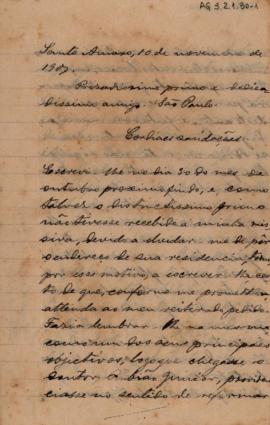 AG 3.2.1.90-1
Santo Amaro, 10 de novembro de
190
Presadissimo primo e dedica
dissimo amigo. São Paulo.
Cordiaes saudações.
Escrevi-lhe no dia 30 do mes de
outubro proximo findo, e, como
talvez o distinctissimo primo
não tivesse recebido a minha mis
siva, devido a
de sua residencia, tomo
por esse motivo, a escrever-lhe
de que, conforme me prometteu,
attenda ao meu reiterado pedido.
Fazia lembrar-lhe na mesma
como um dos seus principaes
objectivos, logo que chegasse o
senhor, Junior,
no sentido de reformar